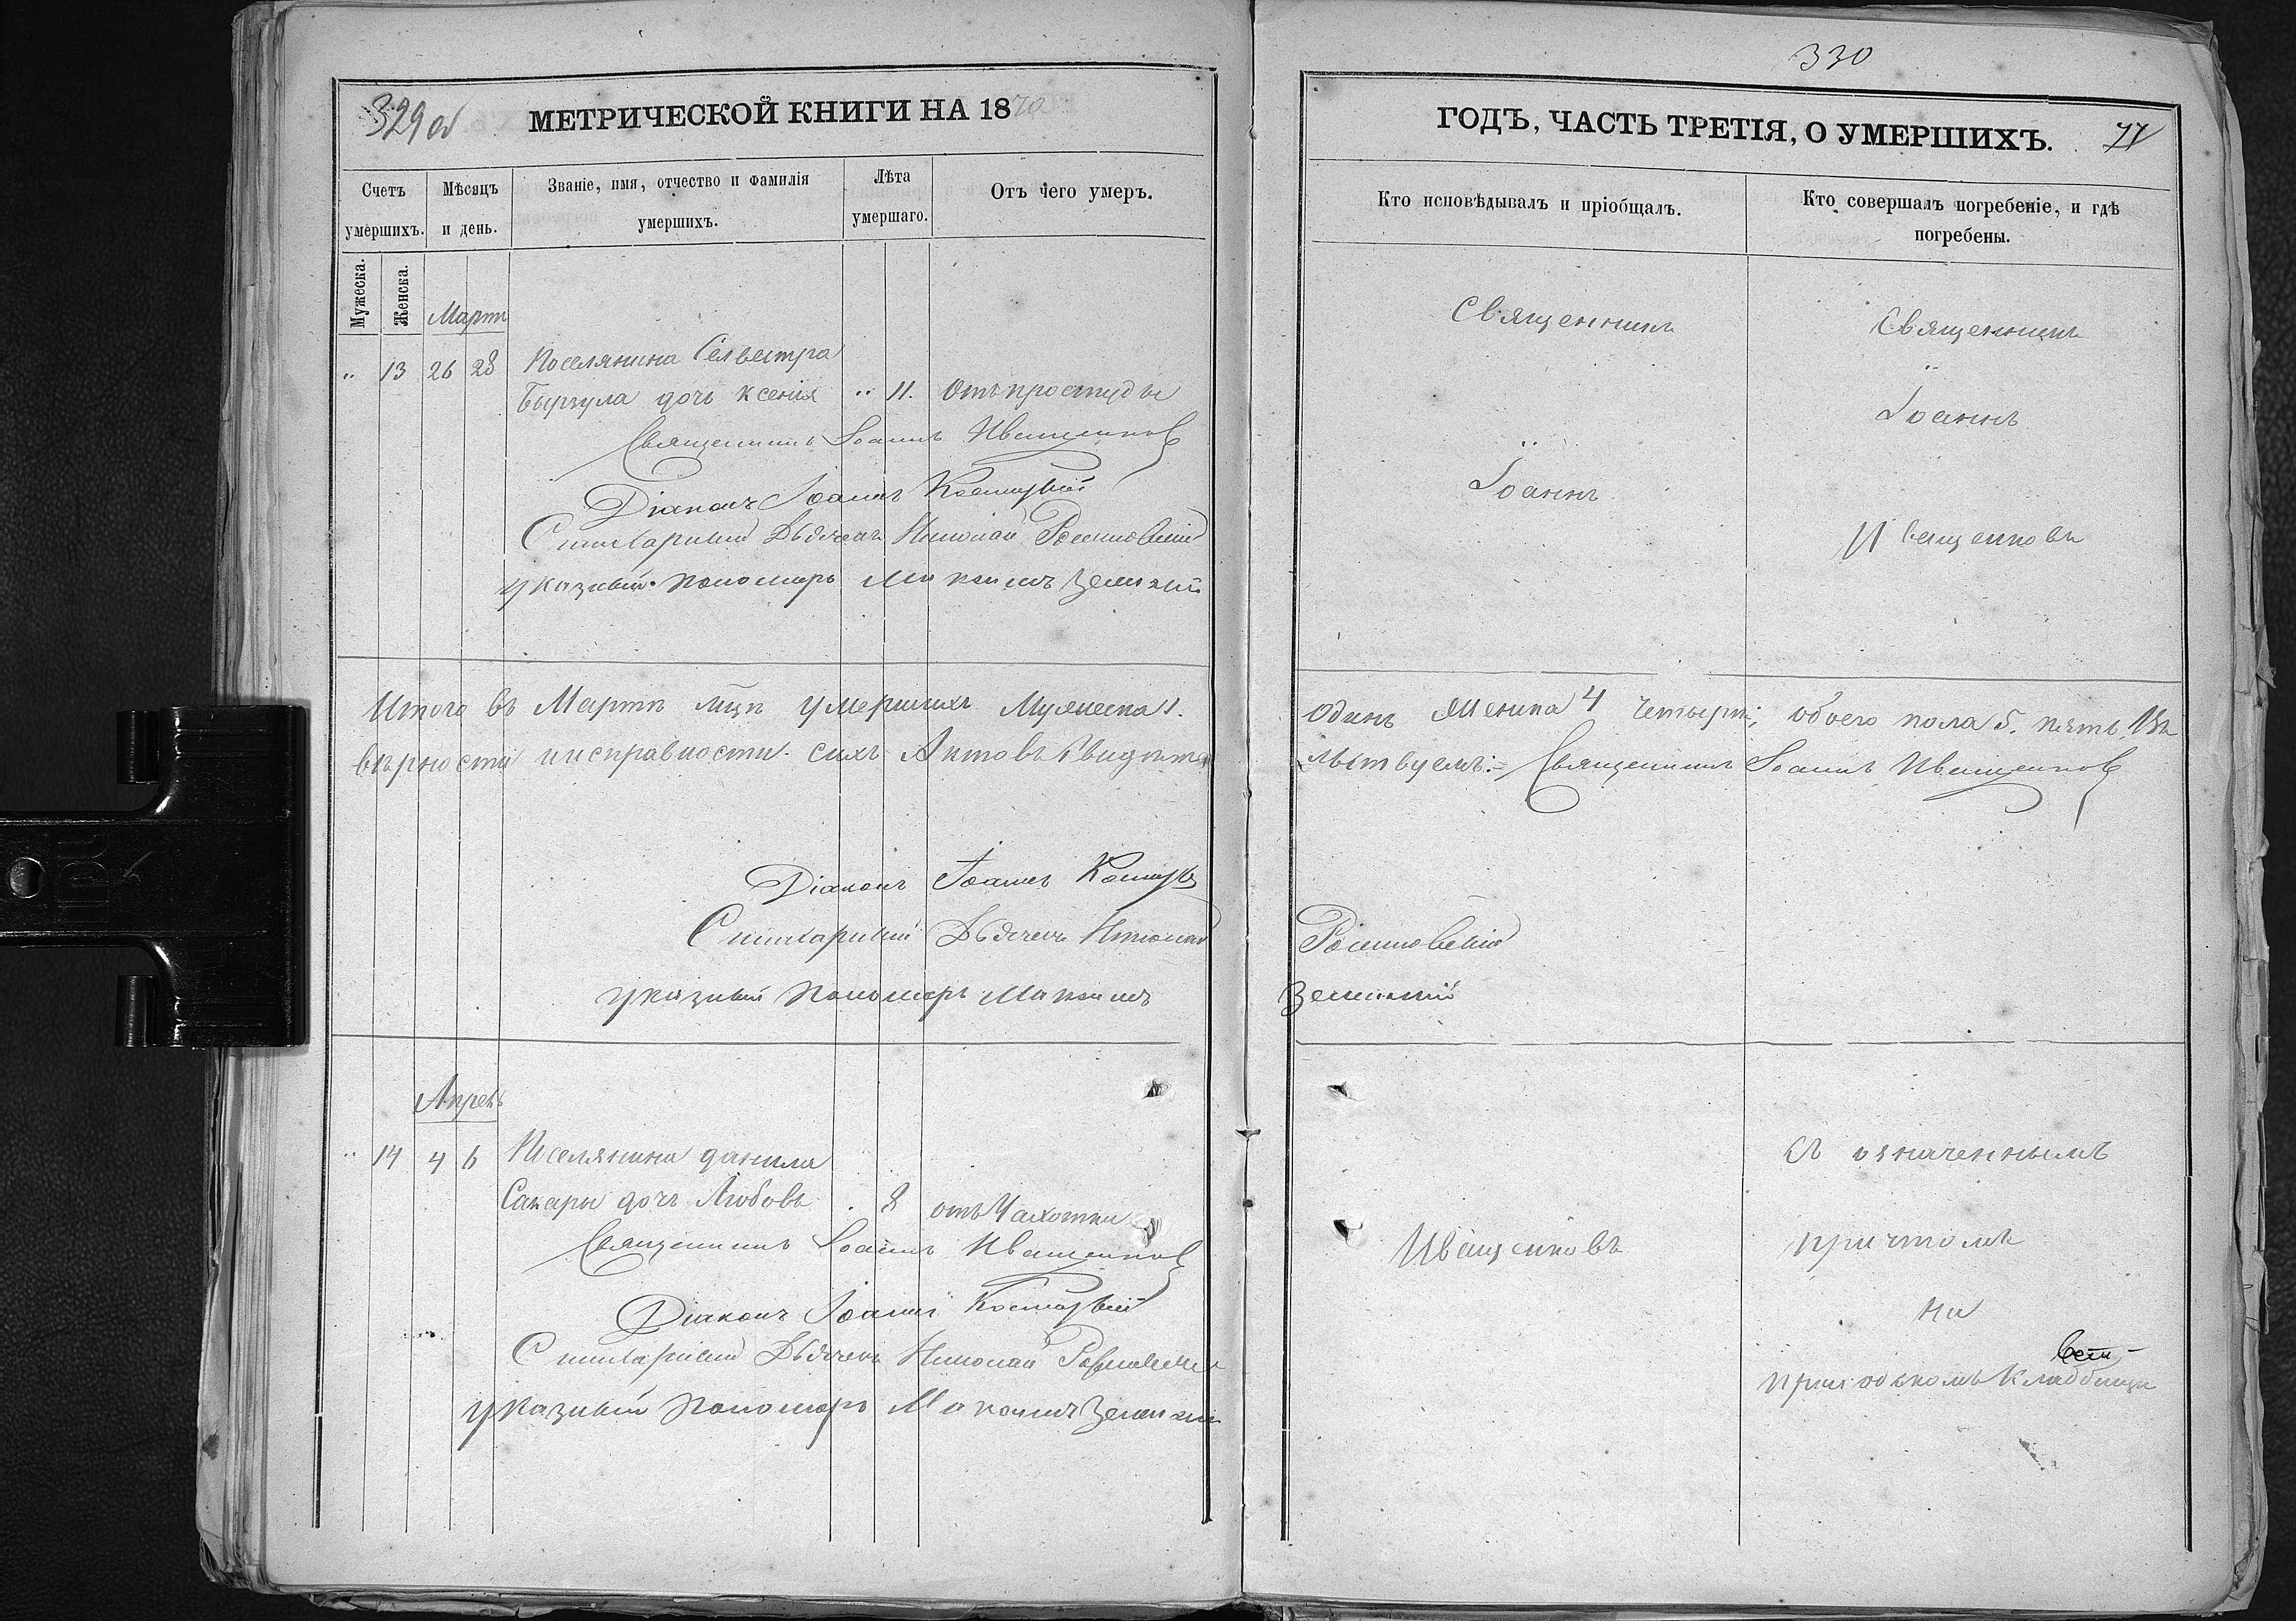 329 об
МЕТРИЧЕСКОЙ КНИГИ НА 1870
Счетъ умершихъ.
Мѣсяцъ и день.
Званіе, имя, отчество и фамилія умершихъ.
Лѣта умершаго.
Отъ чего умеръ.
Мужеска.
Женска.
Мартъ
" 13 26 28 Поселянина Селвестра
Бырзула дочь Ксенія " 11. Отъ простуды
Священникъ Іоаннъ Иващенковъ
Діаконъ Іоаннъ
Стихарный Дьячекъ Николай
указный пономарь Максимъ
Итого въ Мартѣ мцѣ умершихъ Мужеска 1.
вѣрности и исправности сихъ Актовъ Свидѣте
Діаконъ Іоаннъ
Стихарный Дьячекъ Николай
указный Пономарь Максимъ
Апрель
" 14 4 6 Поселянина данила
Сакары дочь Любовь . 8 отъ Чахотки
Священникъ Іоаннъ Иващенковъ
Діаконъ Іоаннъ
Стихарный Дьячекъ Николай
указный Пономарь Максимъ
330
ГОДЪ, ЧАСТЬ ТРЕТІЯ, О УМЕРШИХЪ.
77
Кто исповѣдывалъ и пріобщалъ.
Кто совершалъ погребеніе, и гдѣ
погребены.
Священникъ
Іоаннъ
Священникъ
Іоаннъ
Иващенковъ
Одинъ Женска 4 четыри, обоего пола 5. пять. Въ
льствуемъ: Священникъ Іоаннъ Иващенковъ
Иващенковъ
Съ означеннымъ
причтомъ
на
приходскомъ Кладбищи